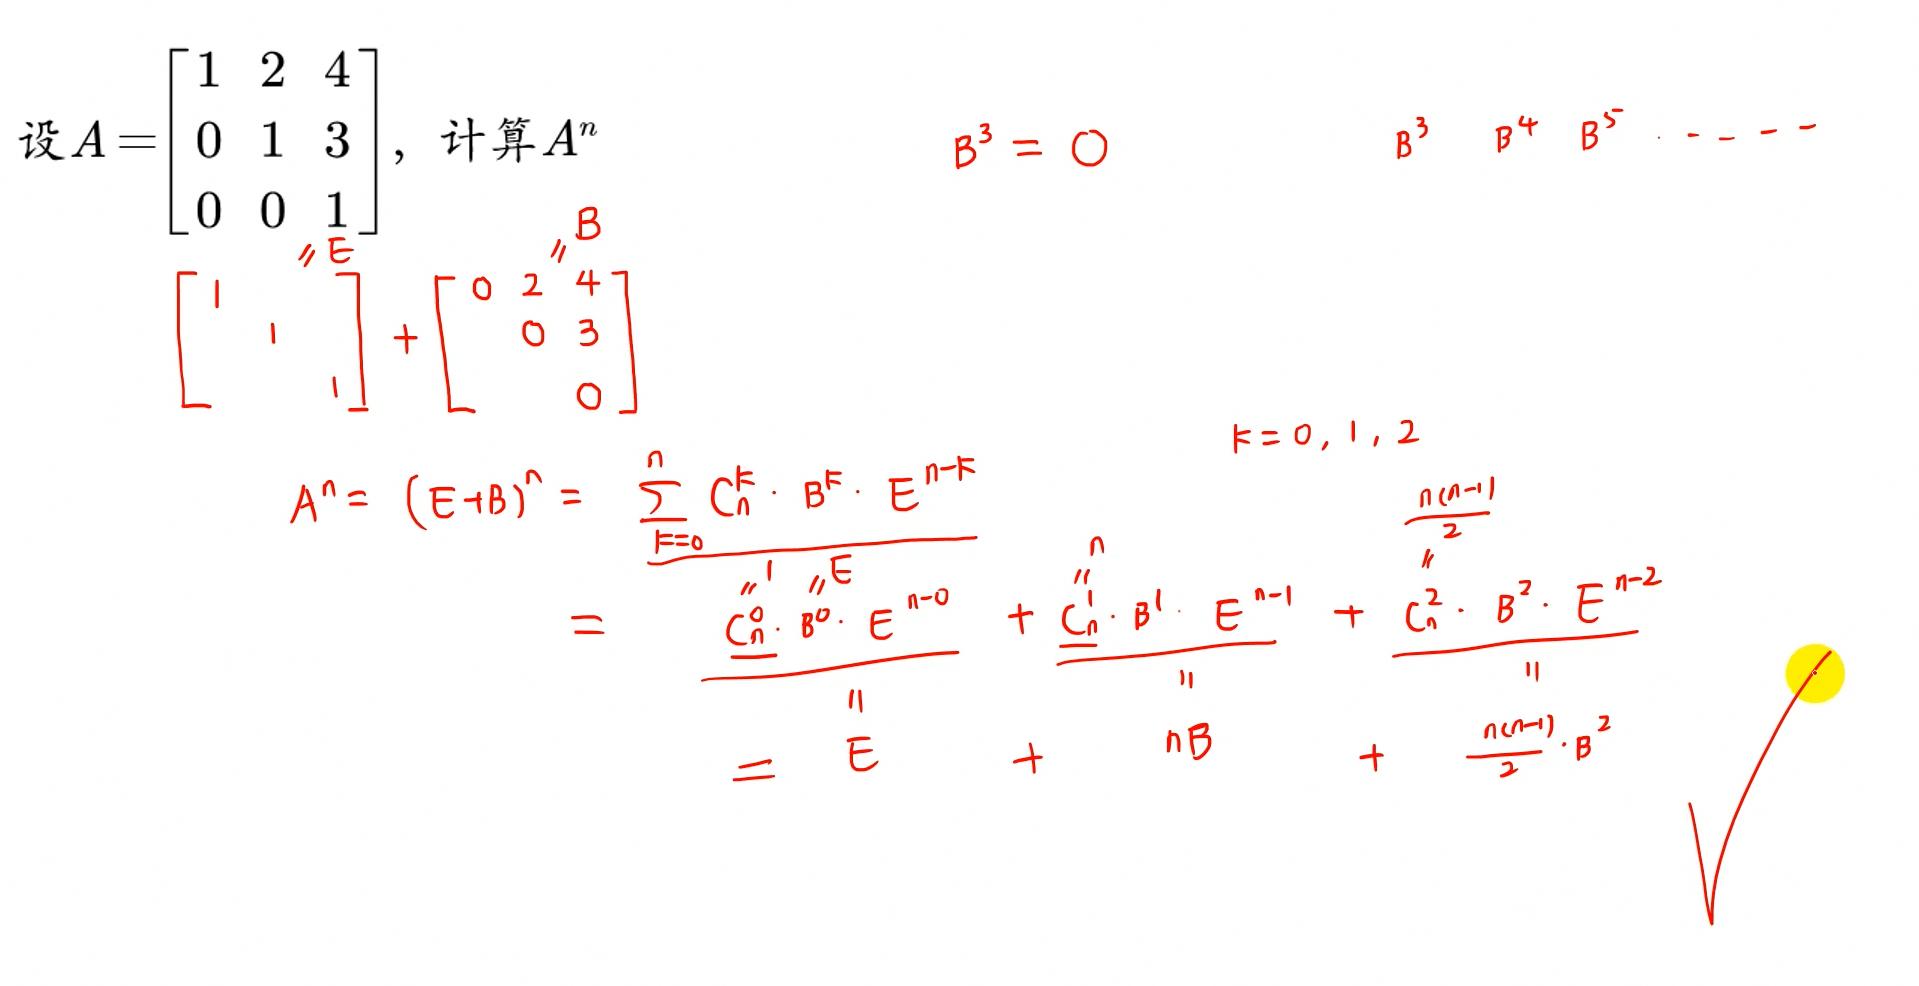 设 A = [1 2 4
0 1 3
0 0 1], 计算 Aⁿ
B³ = 0
B³ B⁴ B⁵ · - - - -
[1
1
1] = E + [0 2 4
0 3
0] = B
k = 0, 1, 2
Aⁿ = (E+B)ⁿ = Σ_{k=0}^{n} C_n^k · B^k · E^{n-k}
= C_n^0 · B⁰ · E^{n-0} + C_n^1 · B¹ · E^{n-1} + C_n^2 · B² · E^{n-2}
= 1 = E = n = n(n-1)/2
= E + nB + n(n-1)/2 · B²